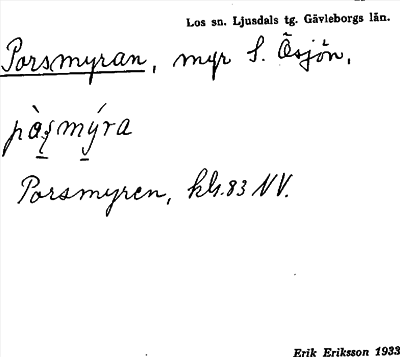 Los sn. Ljusdals tg. Gävleborgs län.
Porsmyran, myr S. Åsjön,
pàșmýra
Porsmyren, kbl. 83 NV.
Erik Eriksson 1933